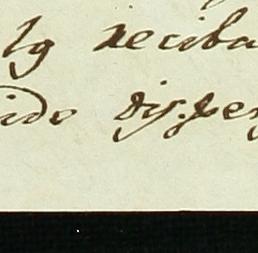 lg reciba
ido dispen